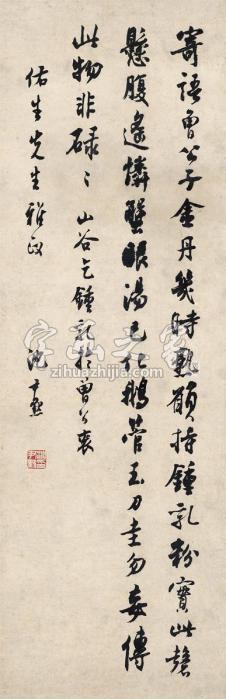 寄語曾公子金丹幾時熟願持鍾乳粉實此磬
懸腹遙憐蟹眼湯已化鵝管玉刀圭勿妄傳
此物非碌〻 山谷乞鍾乳於曾公衮
佑生先生雅政
沈尹默
字画之家
www.zihuazhijia.com